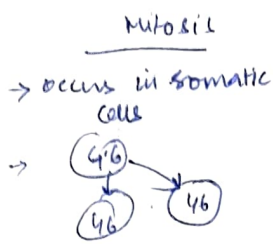 Mitosis
→ occurs in somatic
cells
→ 46
46 46